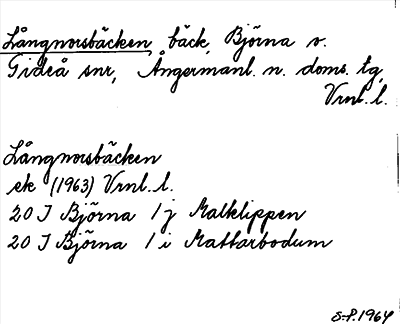 Långnorsbäcken, bäck, Björna v.
Gideå snr, Ångermanl. n. doms. tg,
Vrnl. l.
Långnorsbäcken
ek (1963) Vrnl. l.
20 I Björna 1 j Malklippen
20 I Björna 1 i Mattarbodum
S-P. 1964